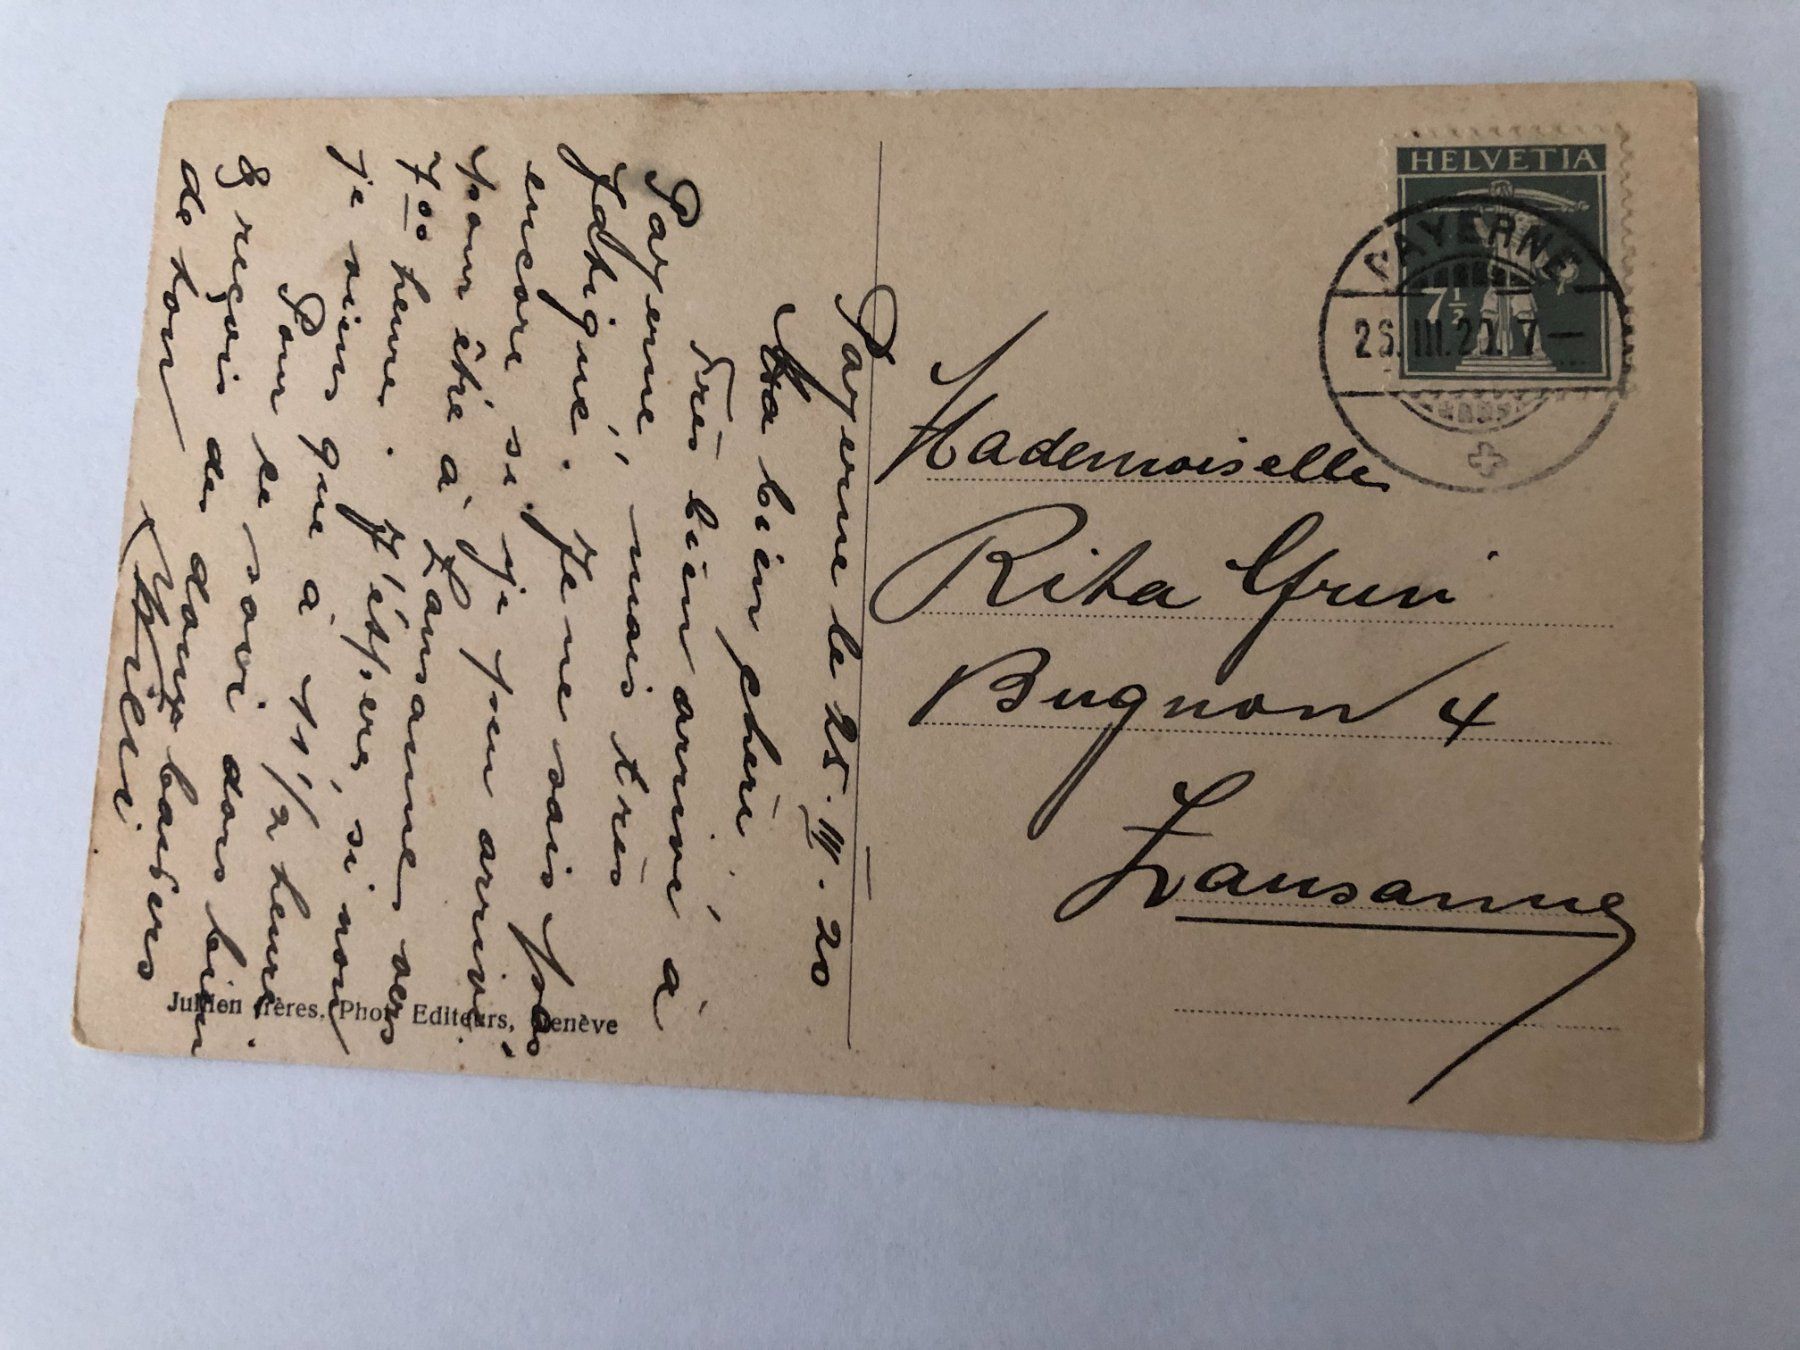 Payerne le 25. III. 20
Ma bien chéri
Très bien arrivé à
Payerne, mais très
fatigué. Je ne sais pas
encore si je peu arrivé
pour être à Lausanne vers
7.00 heure. J'éspère, si non
je viens que à 11 1/2 heure.
Pour ce soir dors bien
& reçois des doux baisers
de ton
Willi
Jullien frères, Phot. Editeurs, Genève
HELVETIA
7 1/2
PAYERNE
26. III. 20. 7—
Mademoiselle
Rita Grun
Bugnon 4
Lausanne